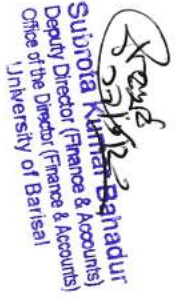 Subrota Kumar Bahadur
Deputy Director (Finance & Accounts)
Office of the Director (Finance & Accounts)
University of Barisal